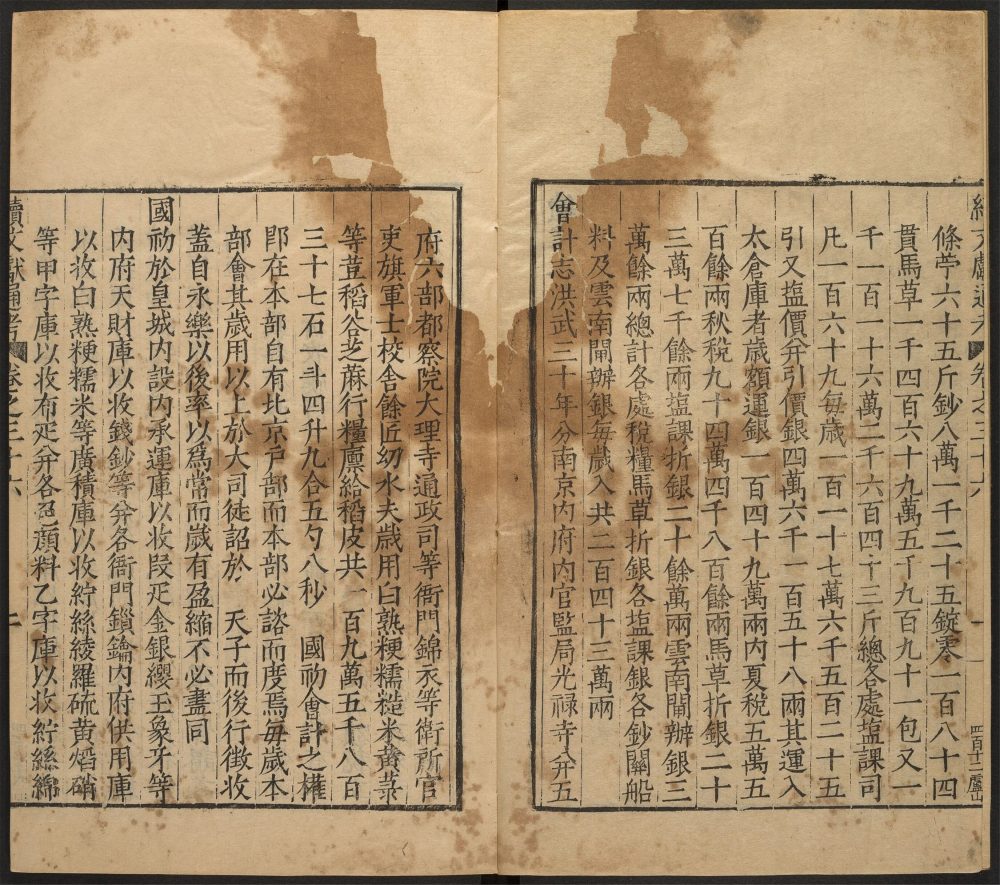 續文獻通考 卷之三十六
條苧六十五斤鈔八萬一千二十五錠零一百八十四
貫馬草一千四百六十九萬五千九百九十一包又一
千一百一十六萬二千六百四十三斤總各處塩課司
凡一百六十九每歲一百一十七萬六千五百二十五
引又塩價并引價銀四萬六千一百五十八兩其運入
太倉庫者歲額運銀一百四十九萬兩内夏稅五萬五
百餘兩秋稅九十四萬四千八百餘兩馬草折銀二十
三萬七千餘兩塩課折銀二十餘萬兩雲南閘辦銀三
萬餘兩總計各處稅糧馬草折銀各塩課銀各鈔關船
料及雲南閘辦銀每歲入共二百四十三萬兩
會計志洪武三十年分南京内府内官監局光禄寺并五
府六部都察院大理寺通政司等衙門錦衣等衛所官
吏旗軍士校舍餘匠幼水夫歲用白熟粳糯糙米黄菉
等荳稻谷芝蔴行糧廪給稻皮共一百九萬五千八百
三十七石一斗四升九合五勺八秒 國初會計之權
即在本部自有北京户部而本部必諮而度焉每歲本
部會其歲用以上於大司徒詔於 天子而後行徴收
蓋自永樂以後率以爲常而歲有盈縮不必盡同
國初於皇城内設内承運庫以收叚疋金銀纓玉象牙等
内府天財庫以收錢鈔等并各衙門鎖鑰内府供用庫
以收白熟粳糯米等廣積庫以收紵絲綾羅硫黄熖硝
等甲字庫以收布疋并各色顔料乙字庫以收紵絲綿
續文獻通考 卷之三十六 二